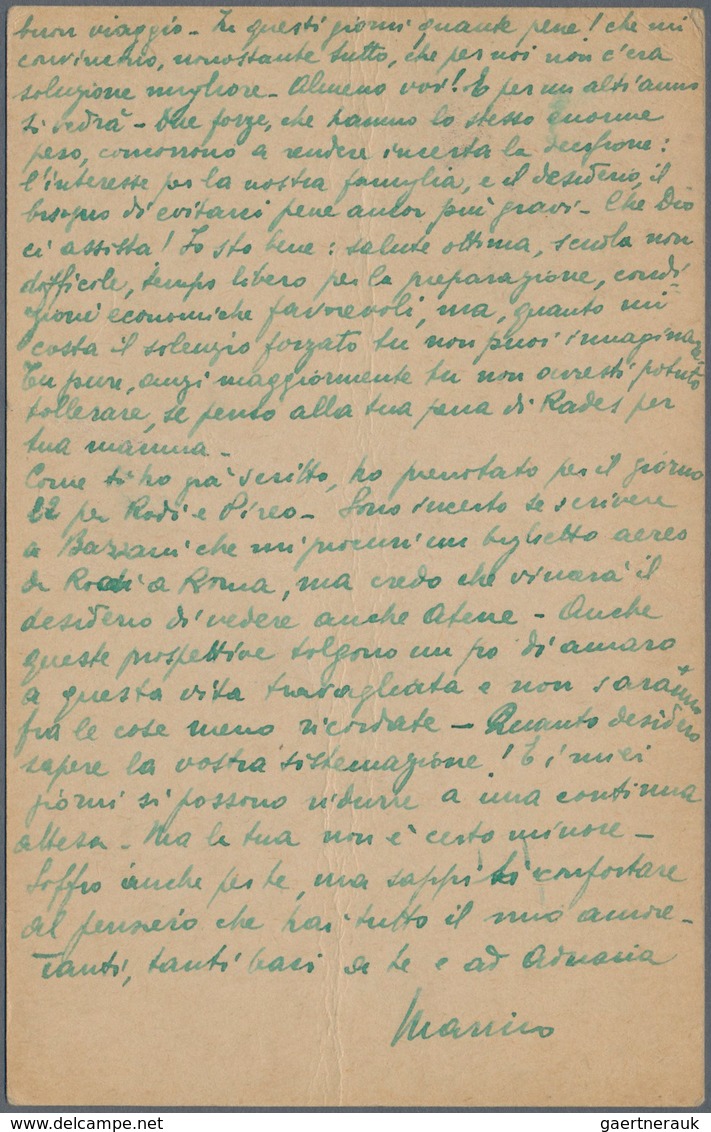 buon viaggio - In questi giorni quante pene! che mi
convinchio, nonostante tutto, che per noi non c'era
soluzione migliore - Almeno voi! E per un altr'anno
si vedrà - Due forze, che hanno lo stesso enorme
peso, concorrono a rendere incerta la decisione:
l'interesse per la nostra famiglia, e il desiderio, il
bisogno di evitarci pene ancor più gravi - Che Dio
ci assista! Io sto bene: salute ottima, scuola non
difficile, tempo libero per la preparazione, condi-
zioni economiche favorevoli, ma, quanto mi
costa il silenzio forzato tu non puoi immaginare
Tu pure, anzi maggiormente tu non avresti potuto
tollerare, se penso alla tua pena di Rades per
tua mamma -
Come ti ho già scritto, ho prenotato per il giorno
22 per Rodi e Pireo - Sono incerto se scrivere
a Bazzani che mi procuri un biglietto aereo
da Rodi a Roma, ma credo che vincerà il
desiderio di vedere anche Atene - Anche
queste prospettive tolgono un po' di amaro
a questa vita travagliata e non saranno
fra le cose meno ricordate - Quanto desidero
sapere la vostra sistemazione! E i miei
giorni si possono ridurre a una continua
attesa - Ma la tua non è certo minore -
Soffro anche per te, ma sappi ti confortare
al pensiero che hai tutto il mio amore -
Tanti, tanti baci a te e ad
Marino
gaertnerauk @ delcampe.net